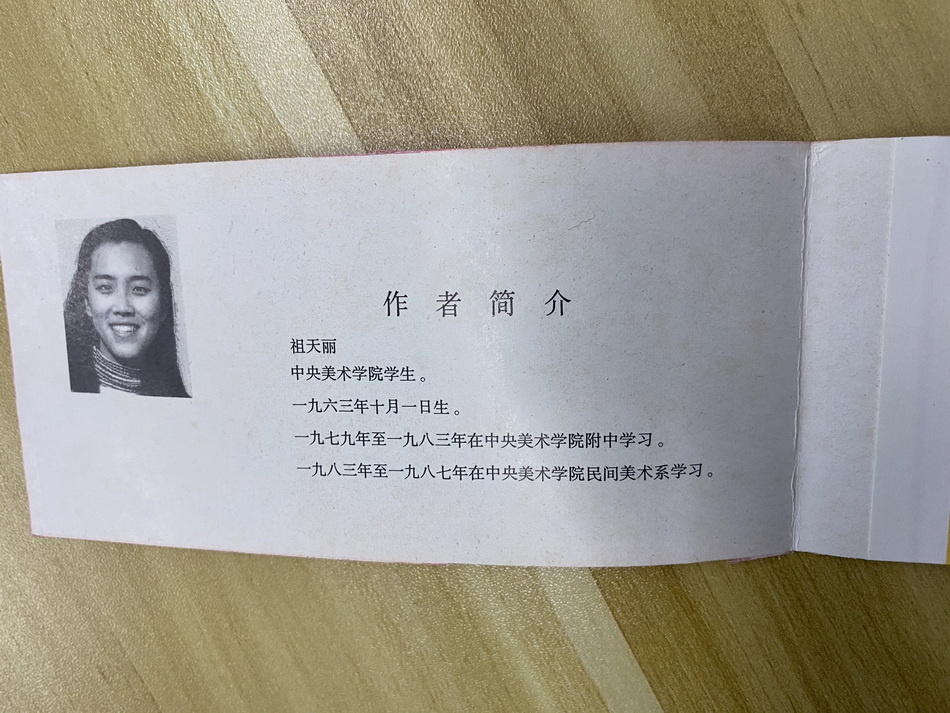 作者简介
祖天丽
中央美术学院学生。
一九六三年十月一日生。
一九七九年至一九八三年在中央美术学院附中学习。
一九八三年至一九八七年在中央美术学院民间美术系学习。